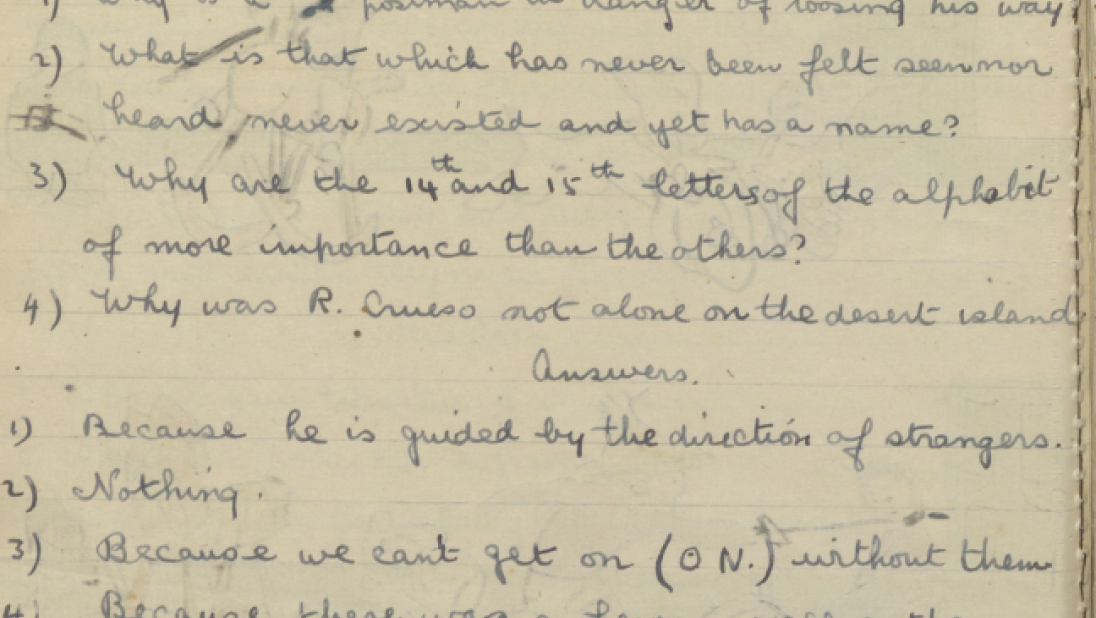 1) Why is a postman in danger of loosing his way
2) What is that which has never been felt seen nor
heard, never existed and yet has a name?
3) Why are the 14th and 15th letters of the alphabet
of more importance than the others?
4) Why was R. Crueso not alone on the desert island
Answers.
1) Because he is guided by the direction of strangers.
2) Nothing.
3) Because we can't get on (O N.) without them
4) Because there was a